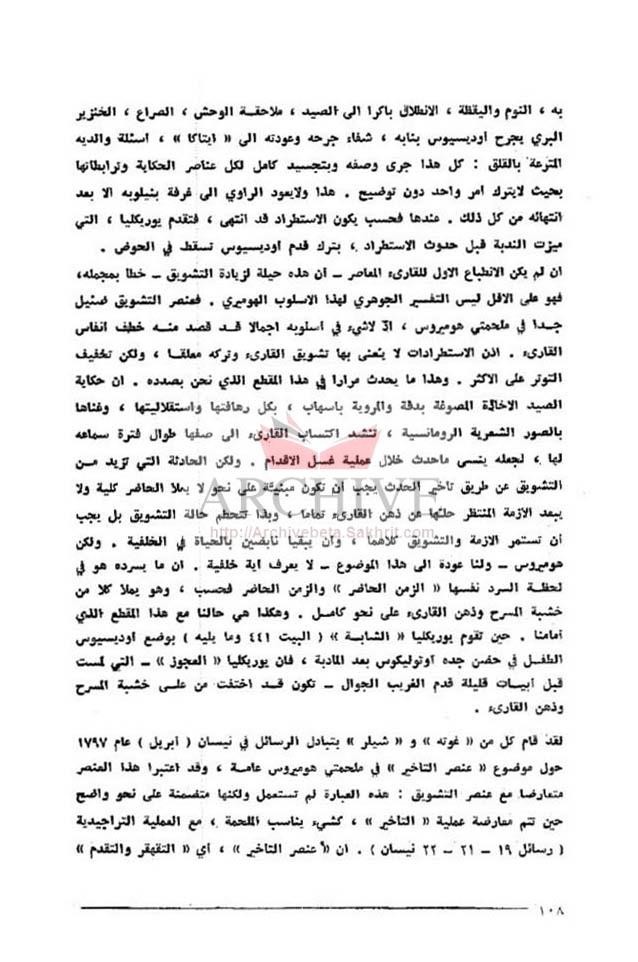 به ، النوم واليقظة ، الانطلاق باكرا الى الصيد ، ملاحقة الوحش ، الصراع ، الخنزير
البري يجرح أوديسيوس بنابه ، شفاء جرحه وعودته الى « ايتاكا » ، اسئلة والديه
المترعة بالقلق : كل هذا جرى وصفه وبتجسيد كامل لكل عناصر الحكاية وترابطاتها
بحيث لايترك امر واحد دون توضيح . هذا ولايعود الراوي الى غرفة بنيلوبه الا بعد
انتهائه من كل ذلك . عندها فحسب يكون الاستطراد قد انتهى ، فتقدم يوريكليا ، التي
ميزت الندبة قبل حدوث الاستطراد ، بترك قدم اوديسيوس تسقط في الحوض .
ان لم يكن الانطباع الاول للقارىء المعاصر ــ أن هذه حيلة لزيادة التشويق ــ خطأ بمجمله،
فهو على الاقل ليس التفسير الجوهري لهذا الاسلوب الهوميري . فعنصر التشويق ضئيل
جدا في ملحمتي هوميروس ، اذ لاشيء في أسلوبه اجمالا قد قصد منه خطف انفاس
القارىء . اذن الاستطرادات لا يُعنى بها تشويق القارىء وتركه معلقا ، ولكن تخفيف
التوتر على الاكثر . وهذا ما يحدث مرارا في هذا المقطع الذي نحن بصدده . ان حكاية
الصيد الاخاذة المصوغة بدقة والمروية باسهاب ، بكل رهافتها واستقلاليتها ، وغناها
بالصور الشعرية الرومانسية ، تنشد اكتساب القارىء الى صفها طوال فترة سماعه
لها ، لجعله ينسى ماحدث خلال عملية غسل الاقدام . ولكن الحادثة التي تزيد من
التشويق عن طريق تأخير الحدث يجب أن تكون مبنيّة على نحو لا يملأ الحاضر كلية ولا
يبعد الازمة المنتظر حلّها عن ذهن القارىء تماما ، وبذا تتحطم حالة التشويق بل يجب
أن تستمر الازمة والتشويق كلاهما ، وأن يبقيا نابضين بالحياة في الخلفية . ولكن
هوميروس ــ ولنا عودة الى هذا الموضوع ــ لا يعرف أية خلفية . ان ما يسرده هو في
لحظة السرد نفسها « الزمن الحاضر » والزمن الحاضر فحسب ، وهو يملأ كلا من
خشبة المسرح وذهن القارىء على نحو كامل . وهكذا هي حالنا مع هذا المقطع الذي
أمامنا . حين تقوم يوريكليا « الشابة » ( البيت ٤٤١ وما يليه ) بوضع أوديسيوس
الطفل في حضن جده أوتوليكوس بعد المأدبة ، فان يوريكليا « العجوز » ــ التي لمست
قبل أبيات قليلة قدم الغريب الجوال ــ تكون قد اختفت من على خشبة المسرح
وذهن القارىء .
لقد قام كل من « غوته » و « شيلر » بتبادل الرسائل في نيسان ( أبريل ) عام ١٧٩٧
حول موضوع « عنصر التأخير » في ملحمتي هوميروس عامة ، وقد اعتبرا هذا العنصر
متعارضا مع عنصر التشويق : هذه العبارة لم تستعمل ولكنها متضمنة على نحو واضح
حين تتم معارضة عملية « التأخير » ، كشيء يناسب الملحمة ، مع العملية التراجيدية
( رسائل ١٩ ــ ٢١ ــ ٢٢ نيسان ) . ان « عنصر التأخير » ، أي « التقهقر والتقدم »
١٠٨
ARCHIVE
http://Archivebeta.Sakhrit.com